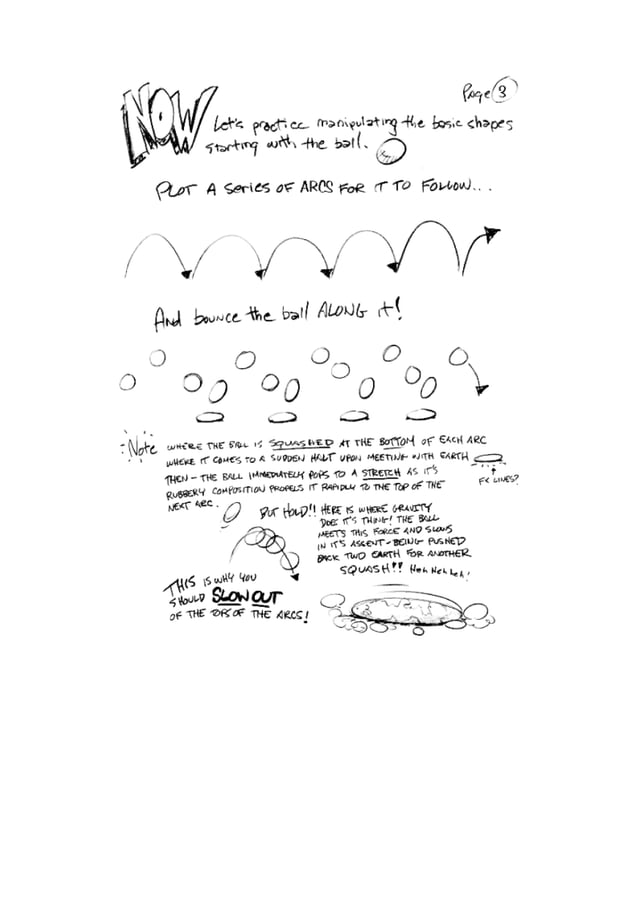 Page 3
NOW Let's practice manipulating the basic shapes
starting with the ball.
PLOT A Series OF ARCS FOR IT TO FOLLOW...
And bounce the ball ALONG it!
Note WHERE THE BALL IS SQUASHED AT THE BOTTOM OF EACH ARC
WHERE IT COMES TO A SUDDEN HALT UPON MEETING WITH EARTH
THEN - THE BALL IMMEDIATELY POPS TO A STRETCH AS IT'S
RUBBERY COMPOSITION PROPELS IT RAPIDLY TO THE TOP OF THE
NEXT ARC.
FX LINES?
BUT HOLD!! HERE IS WHERE GRAVITY
DOE IT'S THING! THE BALL
MEETS THIS FORCE AND SLOWS
IN IT'S ASCENT - BEING PUSHED
BACK TWO EARTH FOR ANOTHER
SQUASH!! Heh Heh heh!
THIS IS WHY YOU
SHOULD SLOW OUT
OF THE TOPS OF THE ARCS!